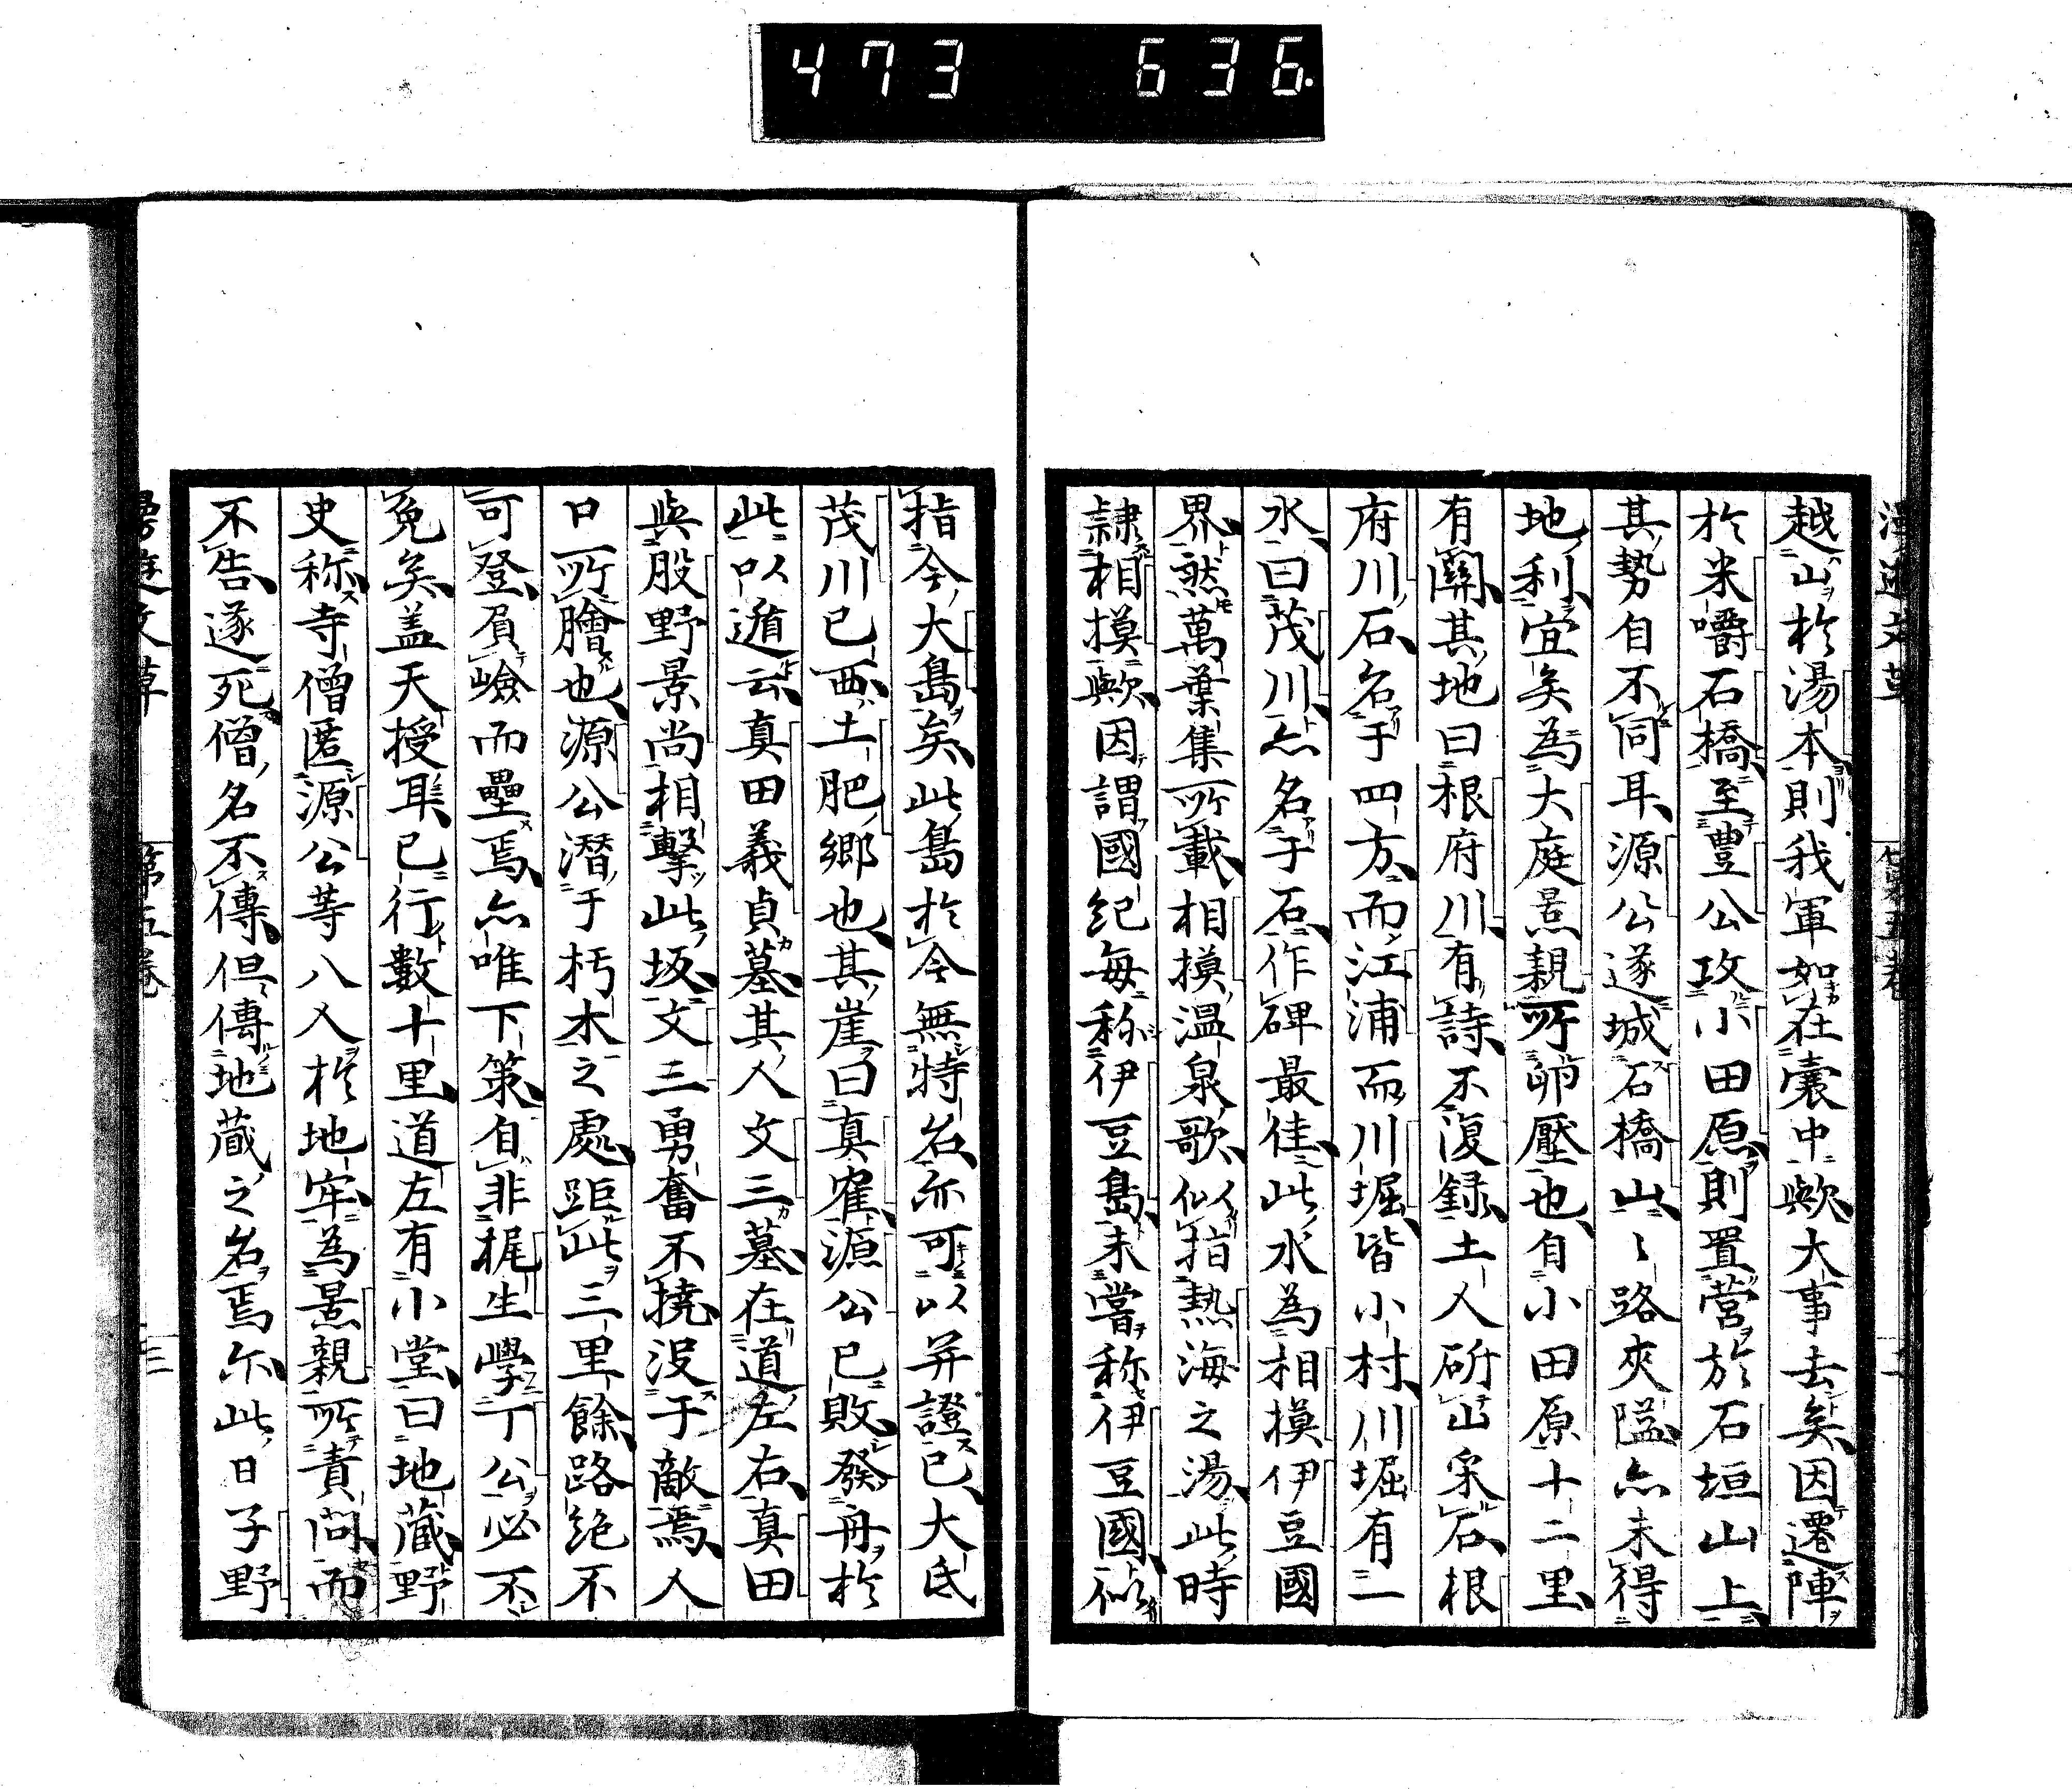 473 636
越山於湯本則我軍如在嚢中歟大事去矣因遷陣
於米嚼石橋至豊公攻小田原則置営於石垣山上
其勢自不同耳源公遂城石橋山〻路夾隘亦未得
地利宜矣為大庭景親所卵壓也自小田原十二里
有關其地曰根府川有詩不復録土人斫山采石根
府川石名于四方而江浦而川堀皆小村川堀有一
水曰茂川亦名于石作碑最佳此水為相摸伊豆國
界然萬葉集所載相摸温泉歌似指熱海之湯此時
隷相摸歟因謂國紀毎称伊豆島未嘗称伊豆國似
指今大島矣此島於今無特名亦可以并證已大氐
茂川已西土肥郷也其崖曰真寉源公已敗發舟於
此以遁云真田義貞墓其人文三墓在道左右真田
與股野景尚相擊此坂文三勇奮不撓没于敵焉人
口所膾也源公潜于朽木之處距此三里餘路絶不
可登負嶮而壘焉亦唯下策自非梶生學丁公必不
免矣盖天授耳已行數十里道左有小堂曰地蔵野
史称寺僧匿源公等八人於地牢為景親所責問而
不告遂死僧名不傳但傳地蔵之名焉尓此日子野
第五巻
三